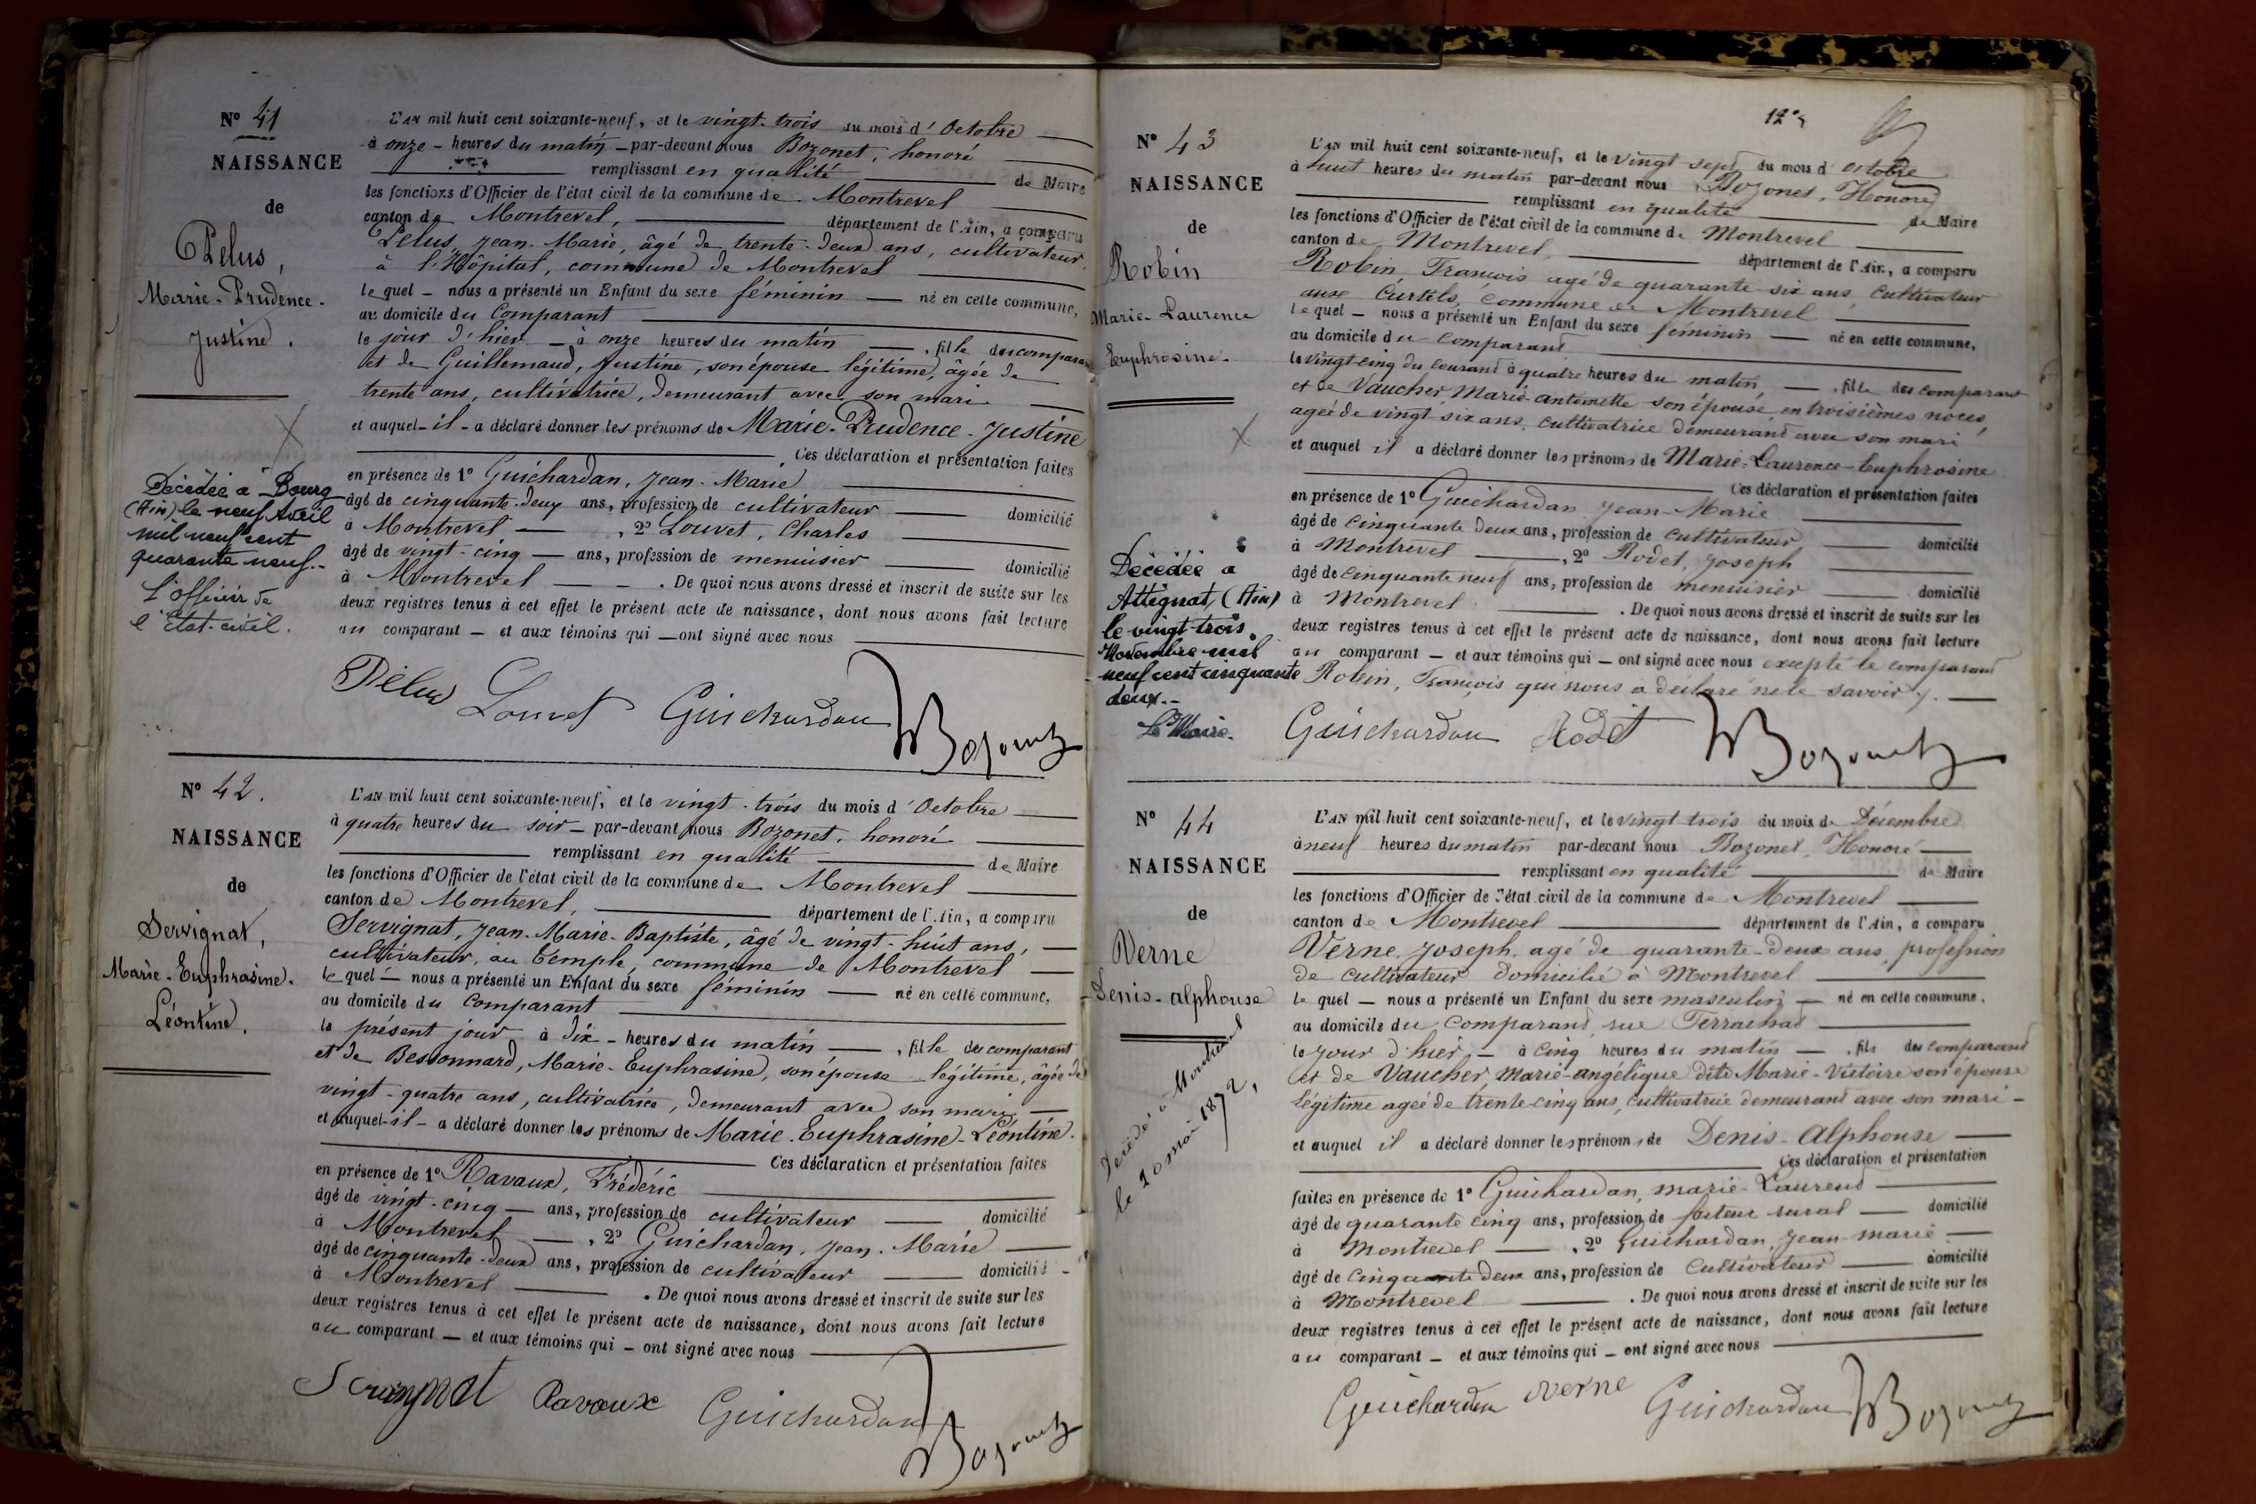 N° 41
NAISSANCE
de
Pelus,
Marie-Prudence-
Justine.
Décédée à Bourg
(Ain) le neuf Avril
mil neuf cent
quarante neuf.-
L'officier de
l'Etat-civil.
L'AN mil huit cent soixante-neuf, et le vingt-trois du mois d'Octobre
à onze - heures du matin - par-devant nous Bozonet, honoré
remplissant en qualité de Maire
les fonctions d'Officier de l'état civil de la commune de Montrevel
canton de Montrevel, département de l'Ain, a comparu
Pelus, Jean-Marie, âgé de trente-deux ans, cultivateur,
à l'Hôpital, commune de Montrevel
lequel - nous a présenté un Enfant du sexe féminin - né en cette commune,
au domicile du Comparant
le jour d'hier - à onze heures du matin -, fille du comparant
et de Guillemaud, Justine, son épouse légitime, âgée de
trente ans, cultivatrice, demeurant avec son mari
et auquel - il - a déclaré donner les prénoms de Marie-Prudence-Justine
Ces déclaration et présentation faites
en présence de 1° Guichardan, Jean-Marie
âgé de cinquante-deux ans, profession de cultivateur domicilié
à Montrevel, 2° Louvet, Charles
âgé de vingt-cinq - ans, profession de menuisier domicilié
à Montrevel - . De quoi nous avons dressé et inscrit de suite sur les
deux registres tenus à cet effet le présent acte de naissance, dont nous avons fait lecture
au comparant - et aux témoins qui - ont signé avec nous
Pélus Louvet Guichardan Bozonet
N° 42.
NAISSANCE
de
Servignat,
Marie-Euphrasine-
Léontine.
L'AN mil huit cent soixante-neuf, et le vingt-trois du mois d'Octobre
à quatre heures du soir - par-devant nous Bozonet, honoré
remplissant en qualité de Maire
les fonctions d'Officier de l'état civil de la commune de Montrevel
canton de Montrevel, département de l'Ain, a comparu
Servignat, Jean-Marie-Baptiste, âgé de vingt-huit ans,
cultivateur, au Temple, commune de Montrevel
lequel - nous a présenté un Enfant du sexe féminin - né en cette commune,
au domicile du Comparant
le présent jour à dix - heures du matin -, fille du comparant
et de Bessonnard, Marie-Euphrasine, son épouse légitime, âgée de
vingt-quatre ans, cultivatrice, demeurant avec son mari
et auquel - il - a déclaré donner les prénoms de Marie-Euphrasine-Léontine.
Ces déclaration et présentation faites
en présence de 1° Ravaux, Frédéric
âgé de vingt-cinq - ans, profession de cultivateur domicilié
à Montrevel, 2° Guichardan, Jean-Marie
âgé de cinquante-deux ans, profession de cultivateur domicilié
à Montrevel . De quoi nous avons dressé et inscrit de suite sur les
deux registres tenus à cet effet le présent acte de naissance, dont nous avons fait lecture
au comparant - et aux témoins qui - ont signé avec nous
Servignat Ravaux Guichardan
Bozonet
N° 43
NAISSANCE
de
Robin
Marie-Laurence
Euphrosine.
Décédée à
Attignat, (Ain)
le vingt-trois
Novembre mil
neuf cent cinquante
deux.-
Le Maire.
L'AN mil huit cent soixante-neuf, et le vingt sept du mois d'octobre
à huit heures du matin par-devant nous Bozonet, Honoré
remplissant en qualité de Maire
les fonctions d'Officier de l'état civil de la commune de Montrevel
canton de Montrevel, département de l'Ain, a comparu
Robin, François agé de quarante six ans, cultivateur
aux Curtels, Commune de Montrevel
lequel - nous a présenté un Enfant du sexe féminin - né en cette commune,
au domicile du Comparant
le vingt-cinq du courant à quatre heures du matin -, fille du comparant
et de Vaucher, Marie-antoinette son épouse en troisièmes noces,
agée de vingt six ans, cultivatrice demeurant avec son mari
et auquel il a déclaré donner les prénoms de Marie-Laurence-Euphrosine
Ces déclaration et présentation faites
en présence de 1° Guichardan Jean-Marie
âgé de cinquante deux ans, profession de cultivateur domicilié
à Montrevel, 2° Rodet, Joseph
âgé de cinquante neuf ans, profession de menuisier domicilié
à Montrevel . De quoi nous avons dressé et inscrit de suite sur les
deux registres tenus à cet effet le présent acte de naissance, dont nous avons fait lecture
au comparant - et aux témoins qui - ont signé avec nous excepté le comparant
Robin, François qui nous a déclaré ne le savoir.
Guichardan Rodet Bozonet
N° 44
NAISSANCE
de
Verne
Denis-alphonse
Décédé à Montrevel
le 20 mai 1872,
L'AN mil huit cent soixante-neuf, et le vingt trois du mois de Décembre
à neuf heures du matin par-devant nous Bozonet, Honoré
remplissant en qualité de Maire
les fonctions d'Officier de l'état civil de la commune de Montrevel
canton de Montrevel département de l'Ain, a comparu
Verne, Joseph, agé de quarante-deux ans, profession
de cultivateur domicilié à Montrevel
lequel - nous a présenté un Enfant du sexe masculin - né en cette commune,
au domicile du Comparant, rue
le jour d'hier - à cinq heures du matin -, fils du comparant
et de Vaucher, Marie-angélique dite Marie-Victoire son épouse
légitime agée de trente-cinq ans, cultivatrice demeurant avec son mari -
et auquel il a déclaré donner les prénoms de Denis-Alphonse
Ces déclaration et présentation
faites en présence de 1° Guichardan, marie-Laurend
âgé de quarante cinq ans, profession de facteur rural domicilié
à Montrevel, 2° Guichardan, Jean-marie
âgé de cinquante deux ans, profession de Cultivateur domicilié
à Montrevel . De quoi nous avons dressé et inscrit de suite sur les
deux registres tenus à cet effet le présent acte de naissance, dont nous avons fait lecture
au comparant - et aux témoins qui - ont signé avec nous
Guichardan verne Guichardan Bozonet